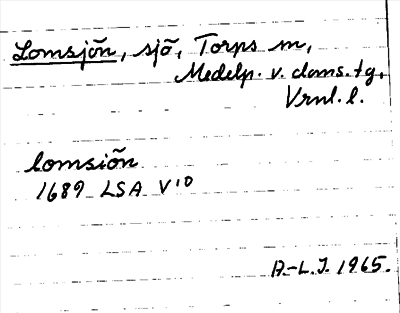 Lomsjön, sjö, Torps sn,
Medelp. v. doms.tg,
Vrnl. l.
lomsiõn
1689 LSA V10
A.-L.J. 1965.